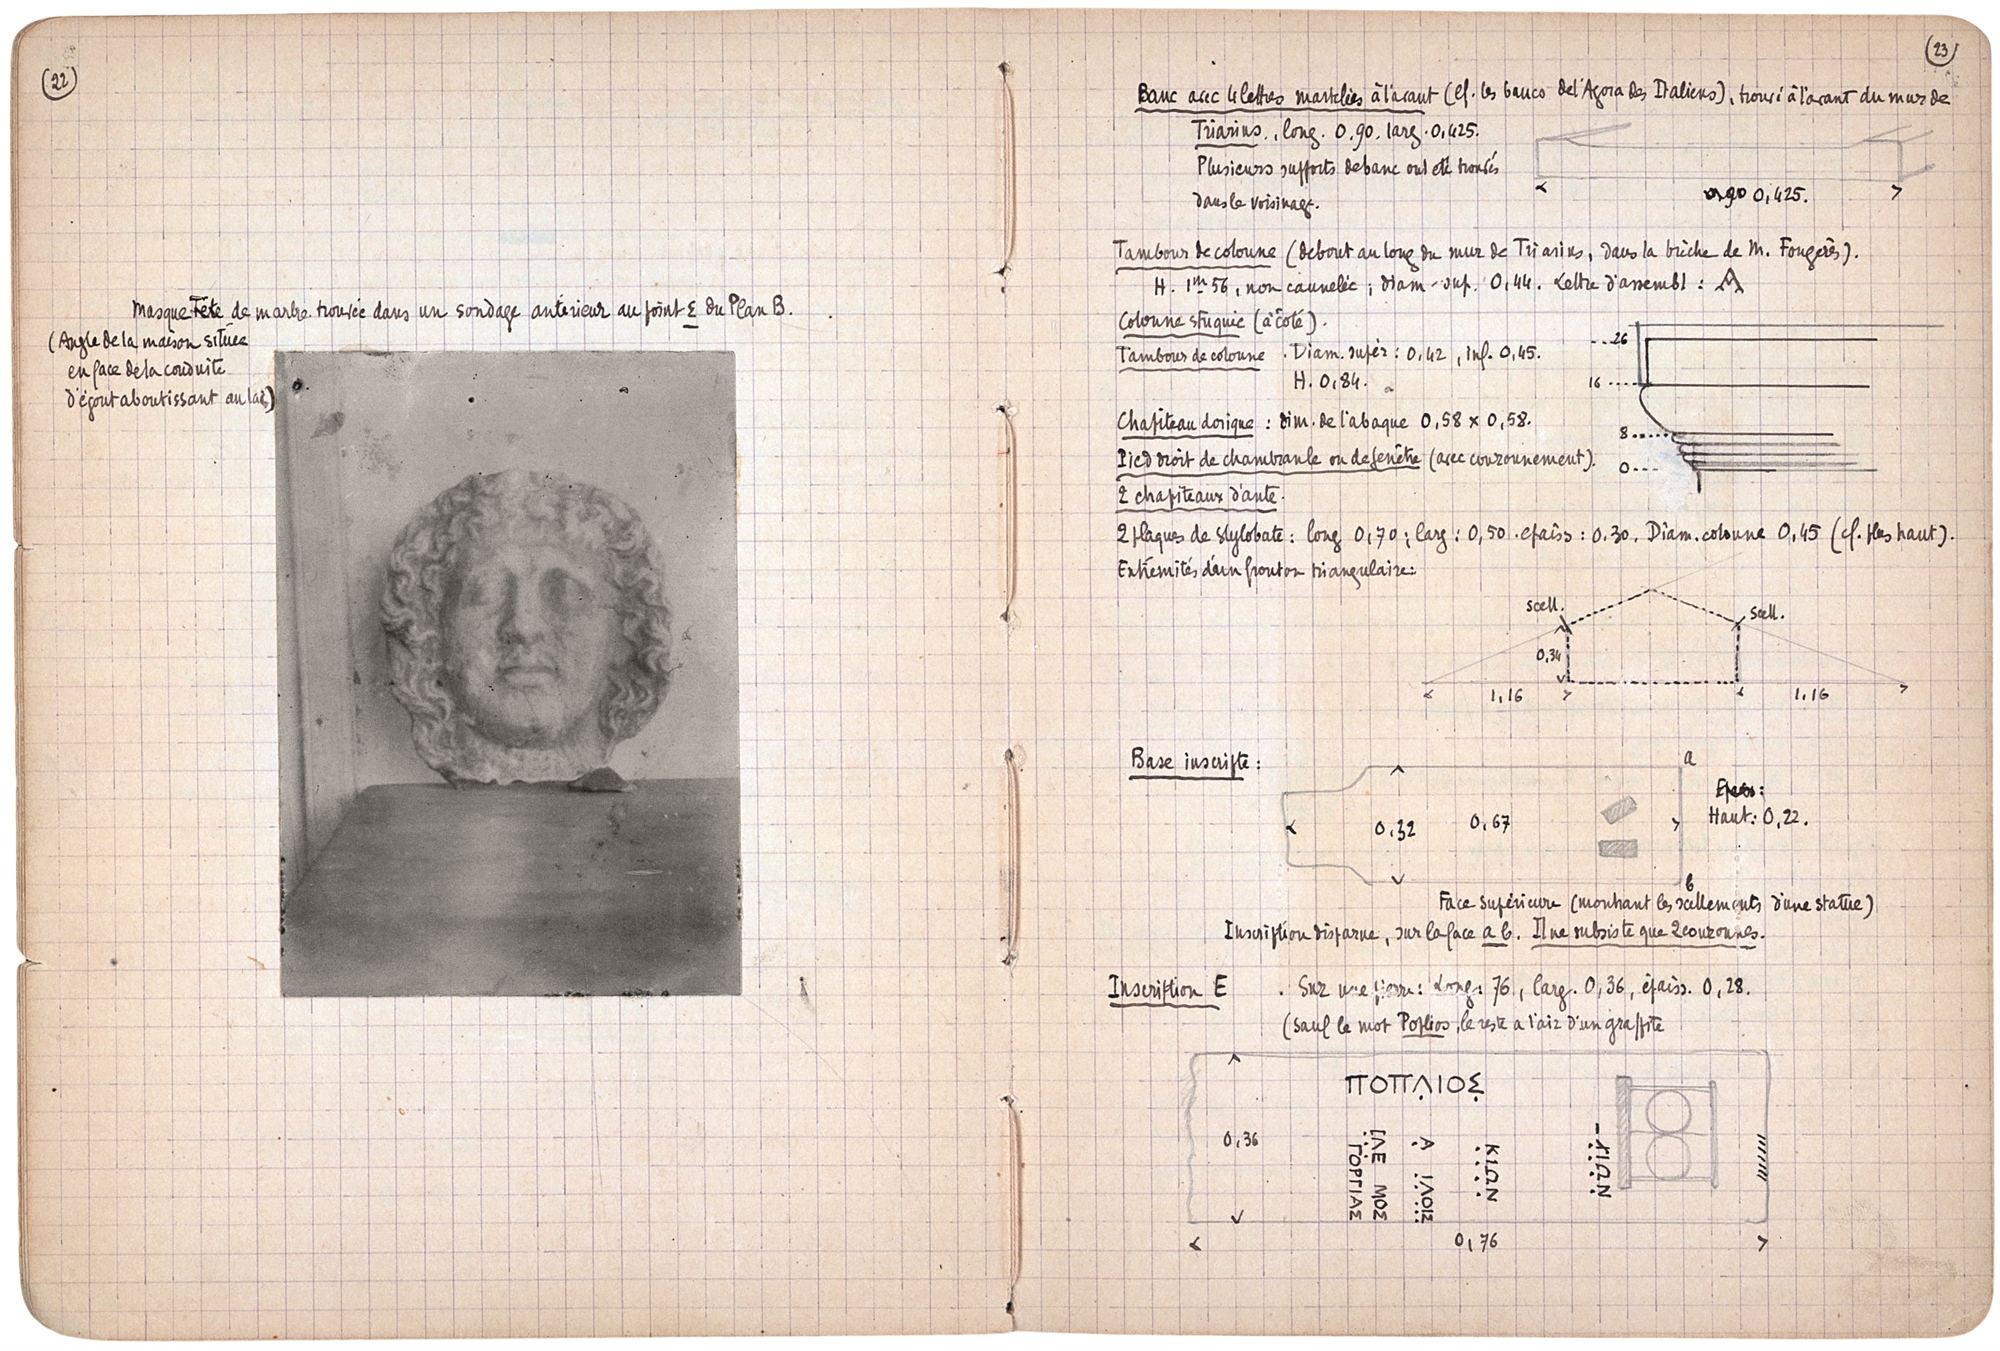 (22)
Masque Tête de marbre trouvée dans un sondage antérieur au point Σ du Plan B.
(Angle de la maison située
en face de la conduite
d'égout aboutissant au lac)
(23)
Banc avec 4 lettres martelées à l'avant (cf. les bancs de l'Agora des Italiens), trouvé à l'avant du mur de
Triarius, long. 0,90. larg. 0,425.
Plusieurs supports de banc ont été trouvés
dans le voisinage.
0,90 0,425.
Tambour de colonne (debout au long du mur de Triarius, dans la brèche de M. Fougères).
H. 1m56, non cannelée ; diam. sup. 0,44. Lettre d'assembl : A
Colonne stuquée (à côté).
Tambour de colonne. Diam. supér : 0,42, inf. 0,45.
H. 0,84.
Chapiteau dorique : dim. de l'abaque 0,58 x 0,58.
Pied droit de chambranle ou de fenêtre (avec couronnement).
2 chapiteaux d'ante.
26
16
8
0
2 plaques de stylobate : long 0,70 ; larg : 0,50. épaiss : 0.30. Diam. colonne 0,45 (cf. plus haut).
Extrémités d'un fronton triangulaire :
scell. scell.
0,34
1,16 1,16
Base inscripte :
a
0,32 0,67
Epaiss :
Haut : 0,22.
b
Face supérieure (montrant les scellements d'une statue)
Inscription disparue, sur la face a b. Il ne subsiste que 2 couronnes.
Inscription E . Sur une pierre : Long : 76, larg. 0,36, épaiss. 0,28.
(sauf le mot Poplios, le reste a l'air d'un graffite
ΠΟΠΛΙΟΣ
0,36
ΓΟΡΓΙΑΣ
ΙΛΕ ΜΟΣ
Α ΙΛΟΙΣ
ΚΙΩΝ
ΚΙΩΝ
0,76